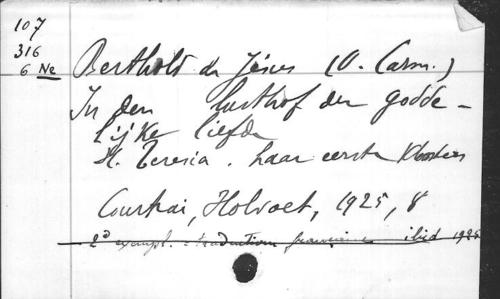 107
316
6 Ne
Berthold de Jésus (O. Carm.)
In den lusthof der godde-
lijke liefde
H. Teresia. haar eerste kloosters
Courtrai, Holvoet, 1925, 8
2d exempl. traduction française ibid 1925